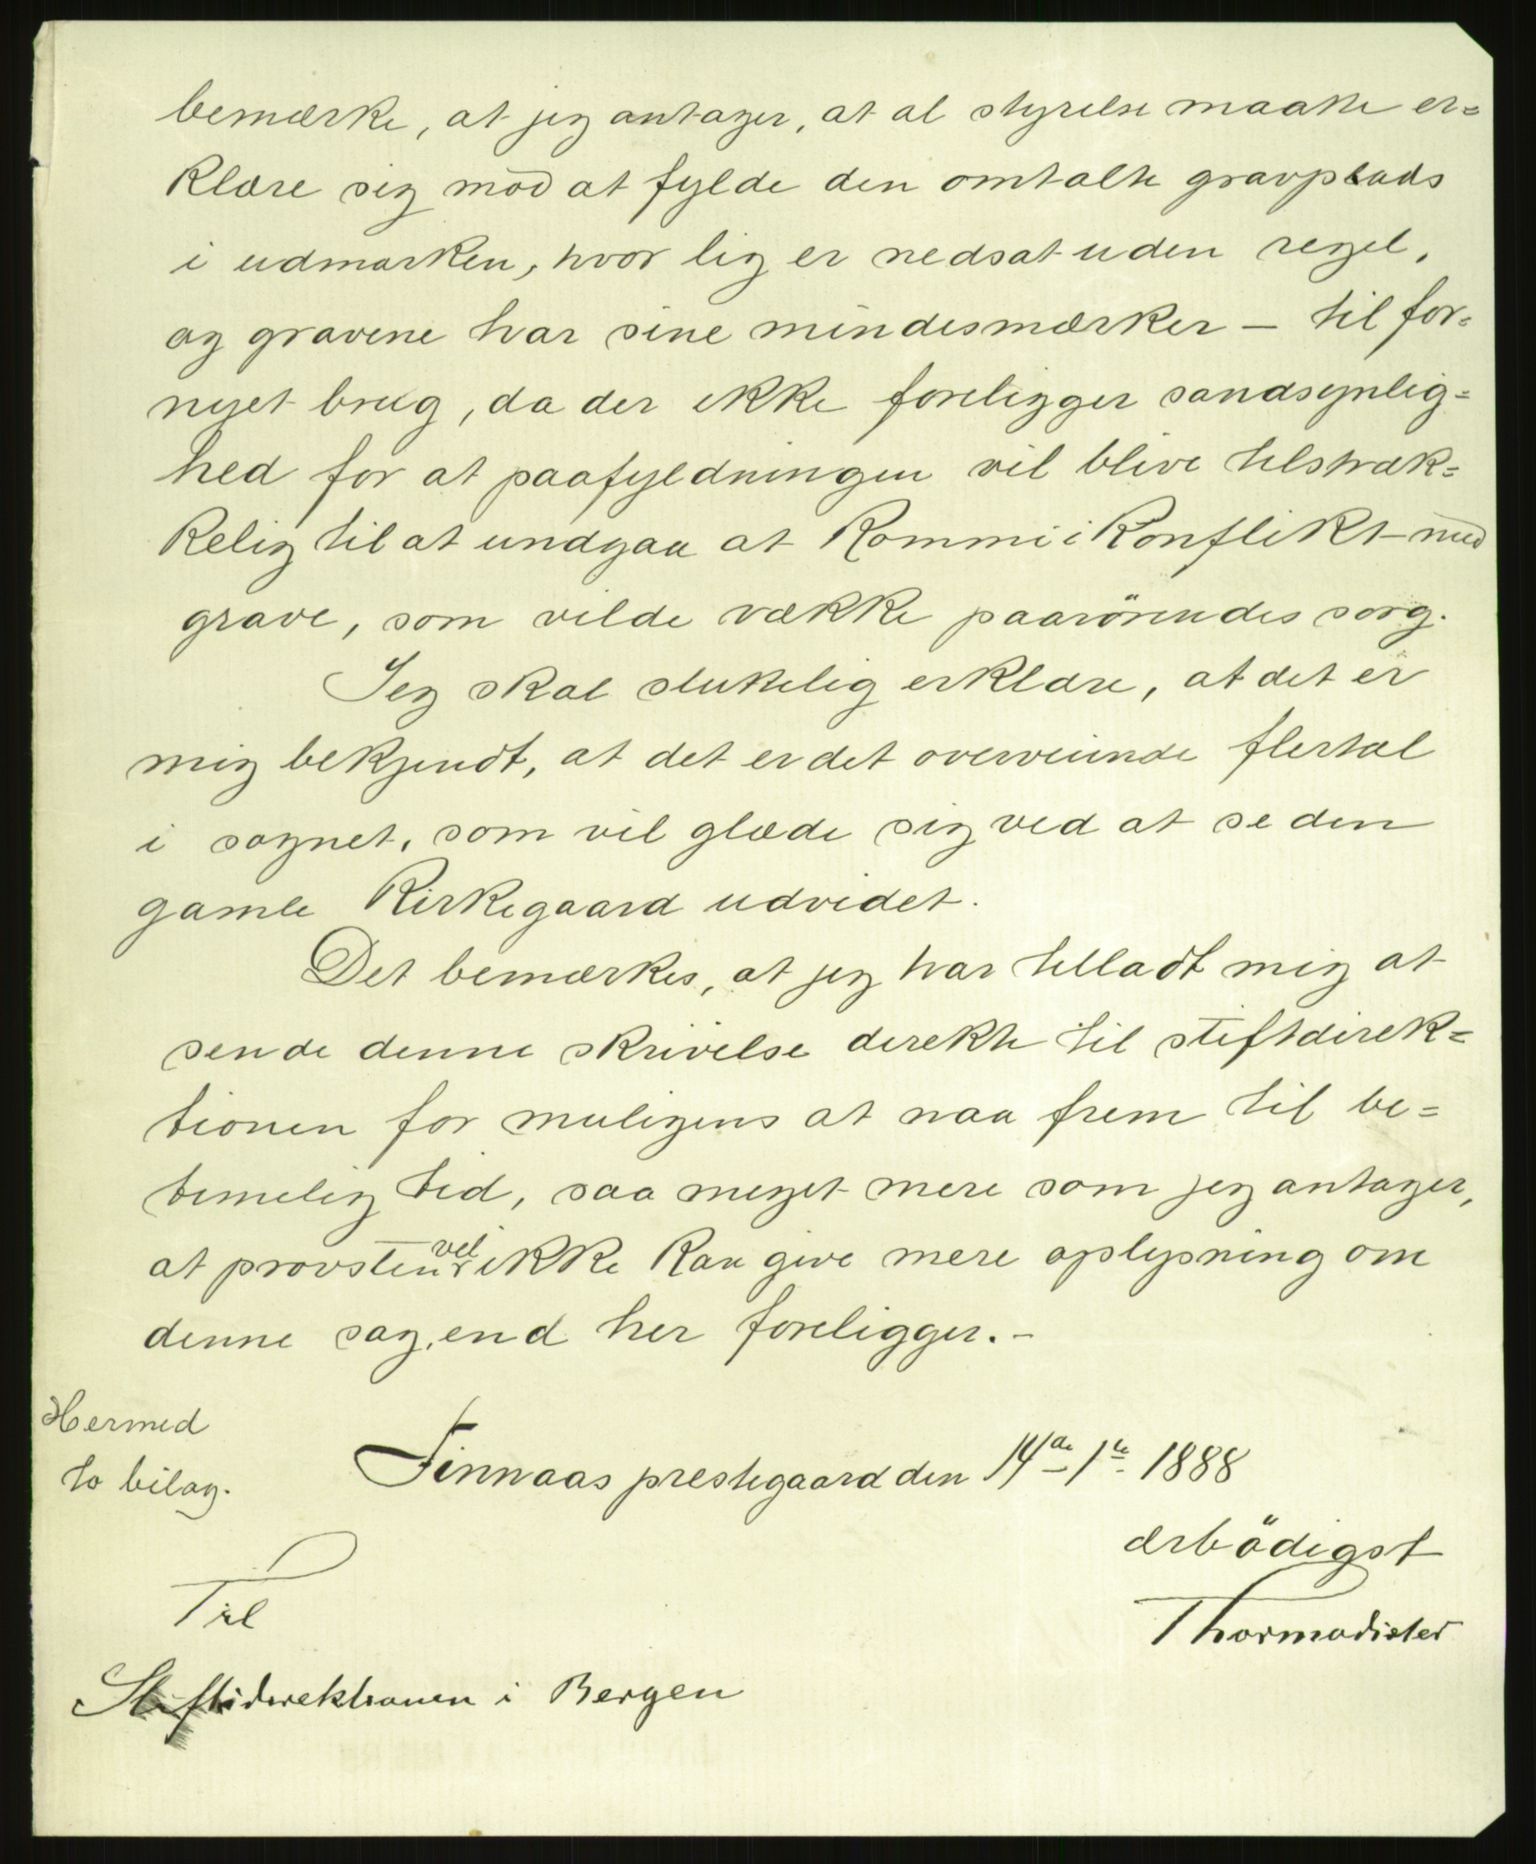 bemærke, at jeg antager, at al styrelse maatte er=
klære sig mod at fylde den omtalte gravplads
i udmarken, hvor lig er nedsat uden regel,
og gravene har sine mindesmærker – til for=
nyet brug, da der ikke foreligger sandsynlig=
hed for at paafyldningen vil blive tilstræk=
kelig til at undgaa at komme i konflikt med
grave, som vilde vække paarörendes sorg.
Jeg skal sluttelig erklære, at det er
mig bekjendt, at det er det overveiende flertal
i sognet, som vil glæde sig ved at se den
gamle Kirkegaard udvidet.
Det bemærkes, at jeg har tilladt mig at
sende denne skrivelse direkte til stiftdirek=
tionen for muligens at naa frem til be=
timelig tid, saa meget mere som jeg antager,
at provsten vel ikke kan give mere oplysning om
denne sag, end her foreligger. –
Hermed
to bilag.
Finnaas prestegaard den 14de 1te 1888
ærbödigst
Thormodsæter
Til
Stiftsdirektionen i Bergen